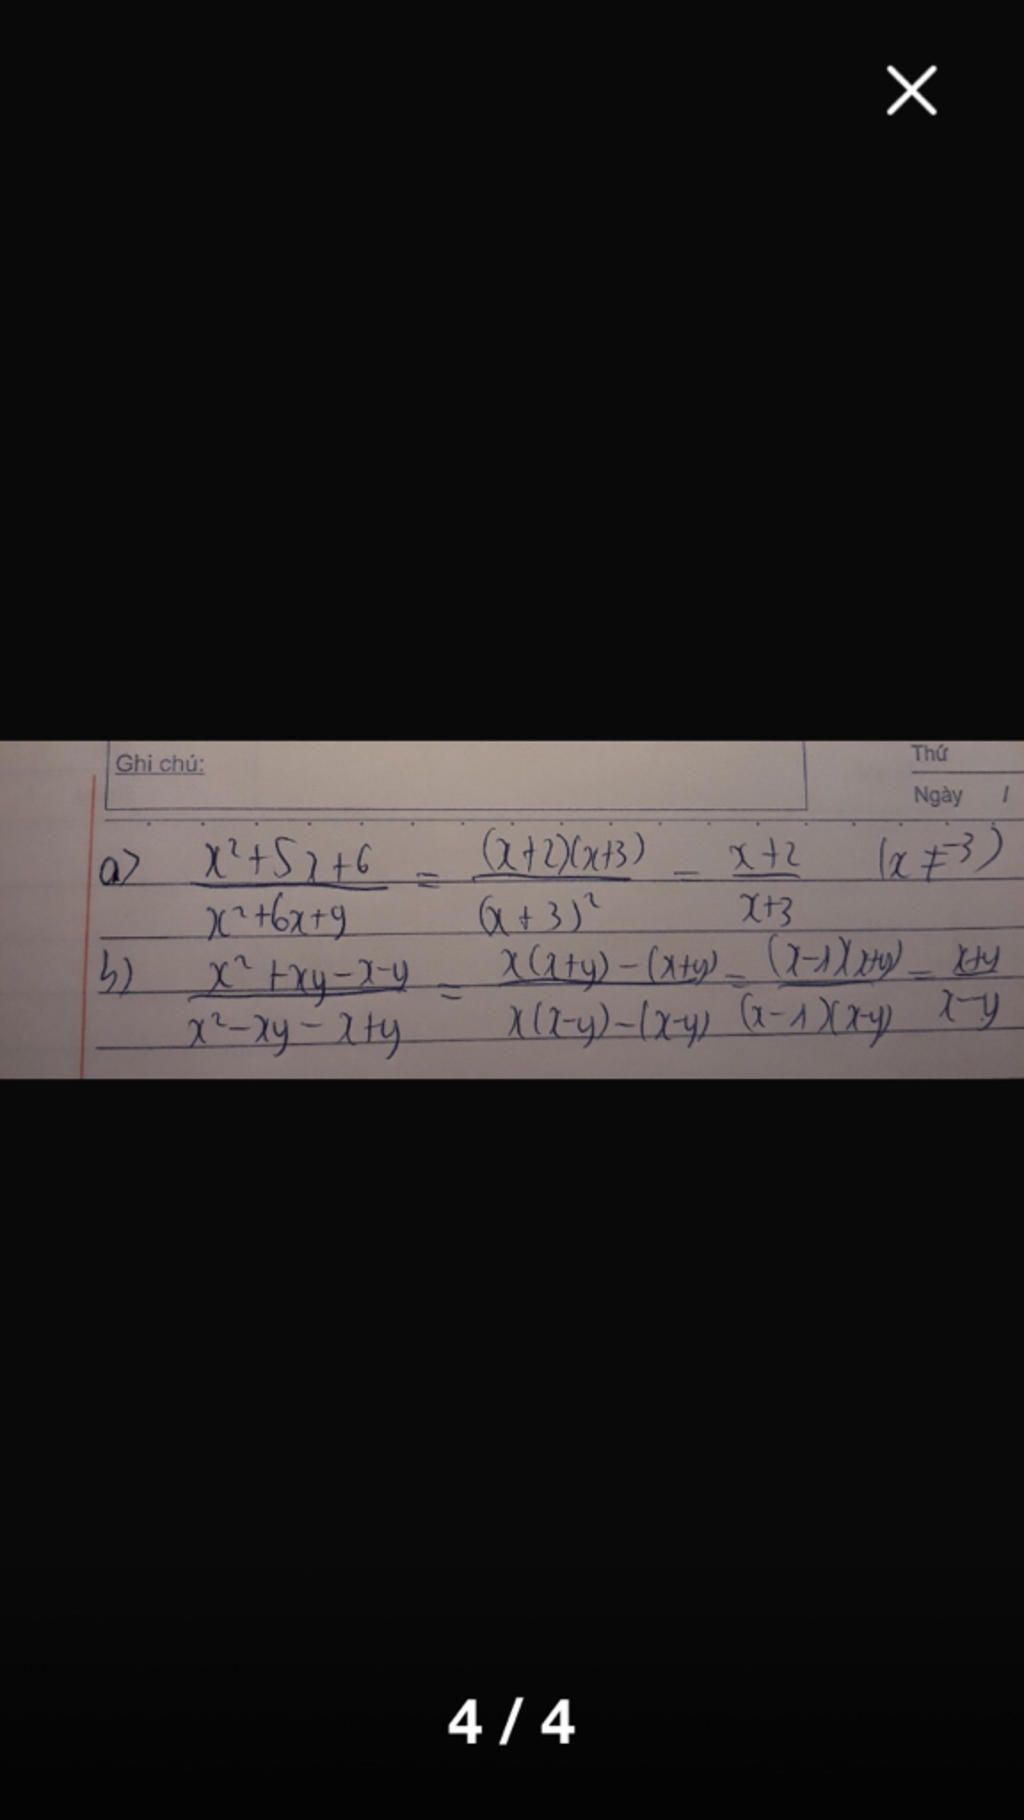 Ghi chú:
Thứ
Ngày /
a) (x²+5x+6)/(x²+6x+9) = ((x+2)(x+3))/((x+3)²) = (x+2)/(x+3) (x ≠ -3)
b) (x²+xy-x-y)/(x²-xy-x+y) = (x(x+y)-(x+y))/(x(x-y)-(x-y)) = ((x-1)(x+y))/((x-1)(x-y)) = (x+y)/(x-y)
4 / 4